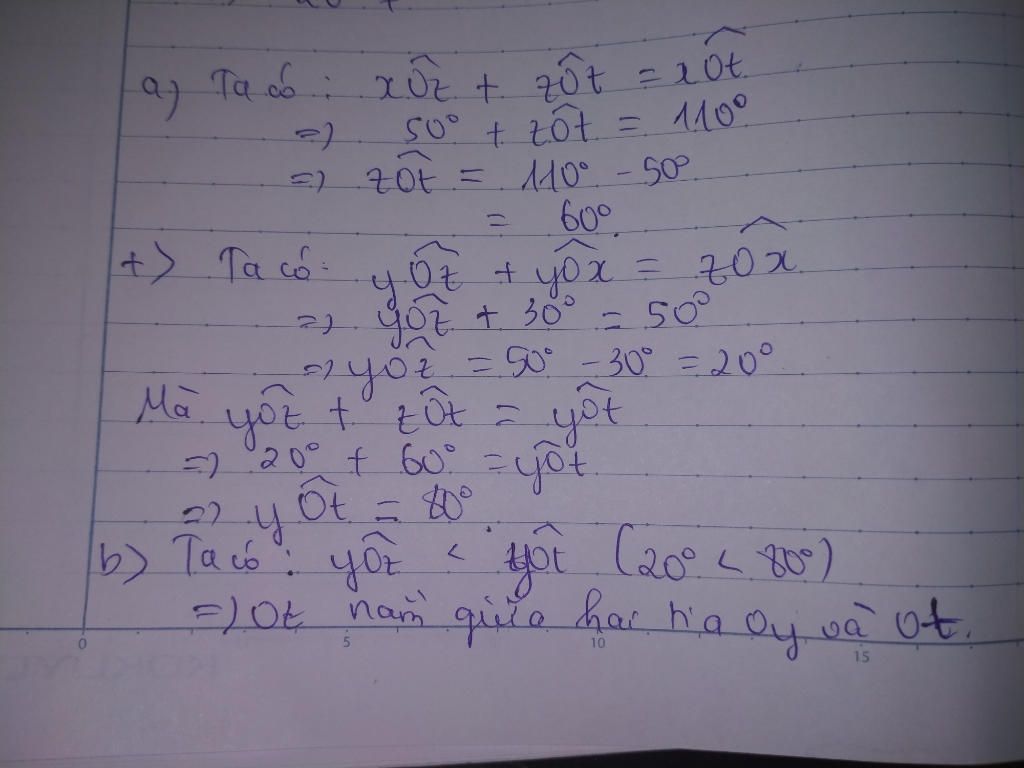 a) Ta có : xÔz + zÔt = xÔt
=> 50° + zÔt = 110°
=> zÔt = 110° - 50°
= 60°.
+> Ta có: yÔz + yÔx = zÔx
=> yÔz + 30° = 50°
=> yÔz = 50° - 30° = 20°
Mà yÔz + zÔt = yÔt
=> 20° + 60° = yÔt
=> yÔt = 80°.
b) Ta có : yÔz < yÔt (20° < 80°)
=> Ot nằm giữa hai tia Oy và Ot.
0 5 10 15